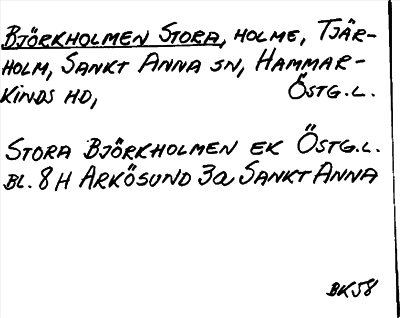 BJÖRKHOLMEN STORA, HOLME, TJÄR-
HOLM, SANKT ANNA SN, HAMMAR-
KINDS HD, ÖSTG.L.
STORA BJÖRKHOLMEN EK ÖSTG.L.
BL. 8 H ARKÖSUND 3a SANKT ANNA
BK58